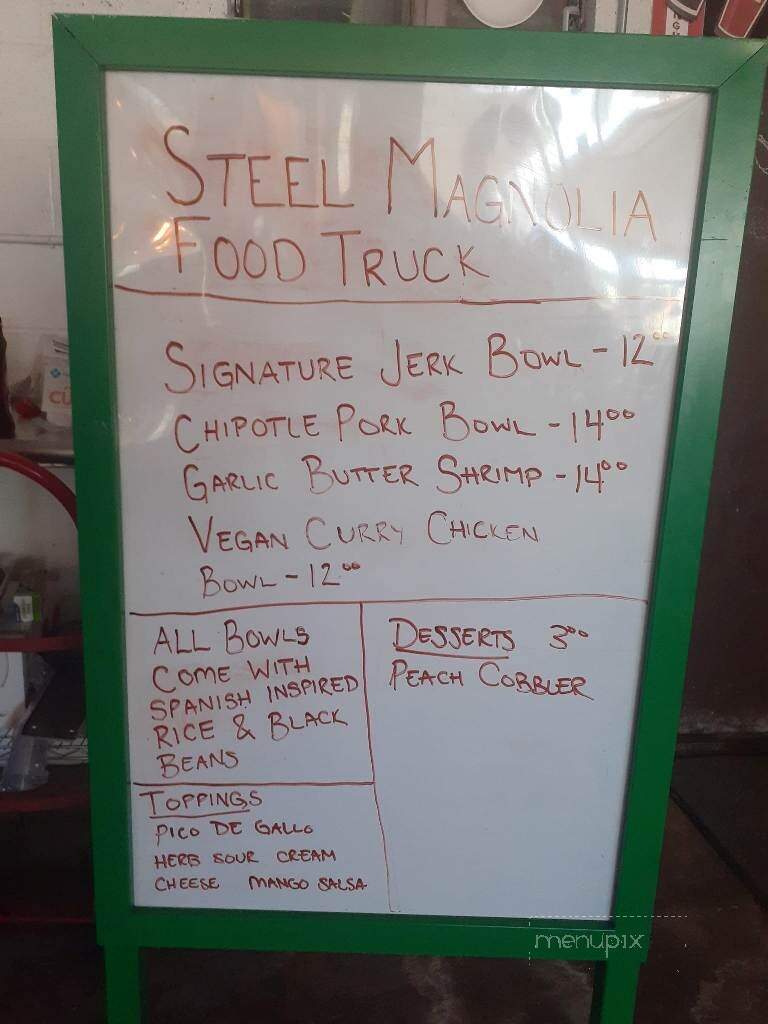 STEEL MAGNOLIA
FOOD TRUCK
SIGNATURE JERK BOWL - 12⁰⁰
CHIPOTLE PORK BOWL - 14⁰⁰
GARLIC BUTTER SHRIMP - 14⁰⁰
VEGAN CURRY CHICKEN
BOWL - 12⁰⁰
ALL BOWLS
COME WITH
SPANISH INSPIRED
RICE & BLACK
BEANS
TOPPINGS
PICO DE GALLO
HERB SOUR CREAM
CHEESE MANGO SALSA
DESSERTS 3⁰⁰
PEACH COBBLER
menupix